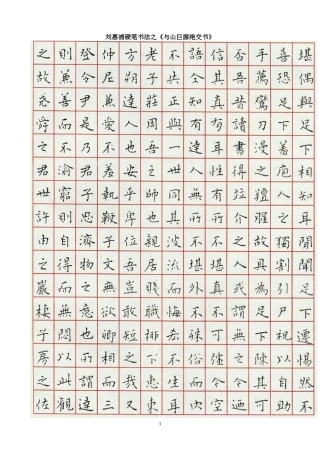 刘惠浦硬笔书法之《与山巨源绝交书》
堪偶與足下相知耳間聞足下遷惕然不
喜恐足下羞庖人之獨割引尸祝以自助
手薦鸞刀漫之羶腥故具為足下陳其可
否吾昔讀書得并介之人或謂無之今乃
信其真有耳性有所不堪真不可强今空
語同知有達人無所不堪外不殊俗而内
不失正與一世同其波流而悔吝不生耳
老子莊周吾之師也親居賤職柳下惠東
方朔達人也安乎卑位吾豈敢短之哉又
仲尼兼愛不羞執鞭子文無欲卿相而三
登令尹是乃君子思濟物之意也所謂達
則兼善而不渝窮則自得而無悶以此觀
之故堯舜之君世許由之巖棲子房之佐
1